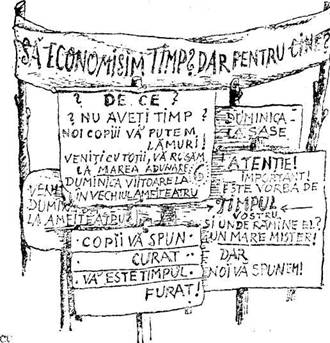 SĂ ECONOMISIM TIMP? DAR PENTRU CINE?
? DE CE ?
? NU AVEȚI TIMP ?
NOI COPIII VĂ PUTEM
LĂMURI!
VENIȚI CU TOȚII, VĂ RUGĂM
LA MAREA ADUNARE!
DUMINICA VIITOARE LA 6!
ÎN VECHIUL AMFITEATRU
DUMINICA
LA ȘASE
ATENȚIE!
IMPORTANT!
ESTE VORBA DE
TIMPUL
VOSTRU
ȘI UNDE RĂMÎNE EL?
UN MARE MISTER!
DAR
NOI VĂ SPUNEM!
DUMI
LA AMFITEATRU
COPIII VĂ SPUN
CURAT
VĂ ESTE TIMPUL
FURAT!